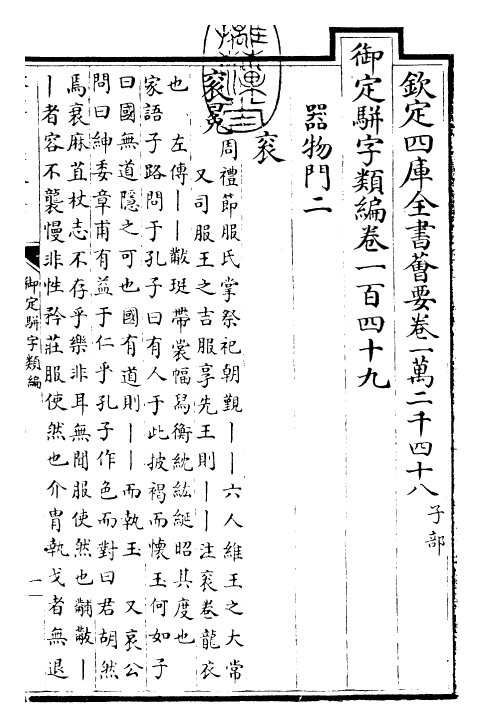 欽定四庫全書薈要卷一萬二千四十八 子部
御定駢字類編卷一百四十九
器物門二
衮
衮冕 周禮節服氏掌祭祀朝覲丨丨六人維王之大常
又司服王之吉服享先王則丨丨注衮卷龍衣
也 左傳丨丨黻珽帶裳幅舄衡紞紘綖昭其度也
家語子路問于孔子曰有人于此披褐而懷玉何如子
曰國無道隱之可也國有道則丨丨而執玉 又哀公
問曰紳委章甫有益于仁乎孔子作色而對曰君胡然
焉衰麻苴杖志不存乎樂非耳無聞服使然也黼黻丨
丨者容不襲慢非性矜莊服使然也介胄執戈者無退
御定駢字類編
一